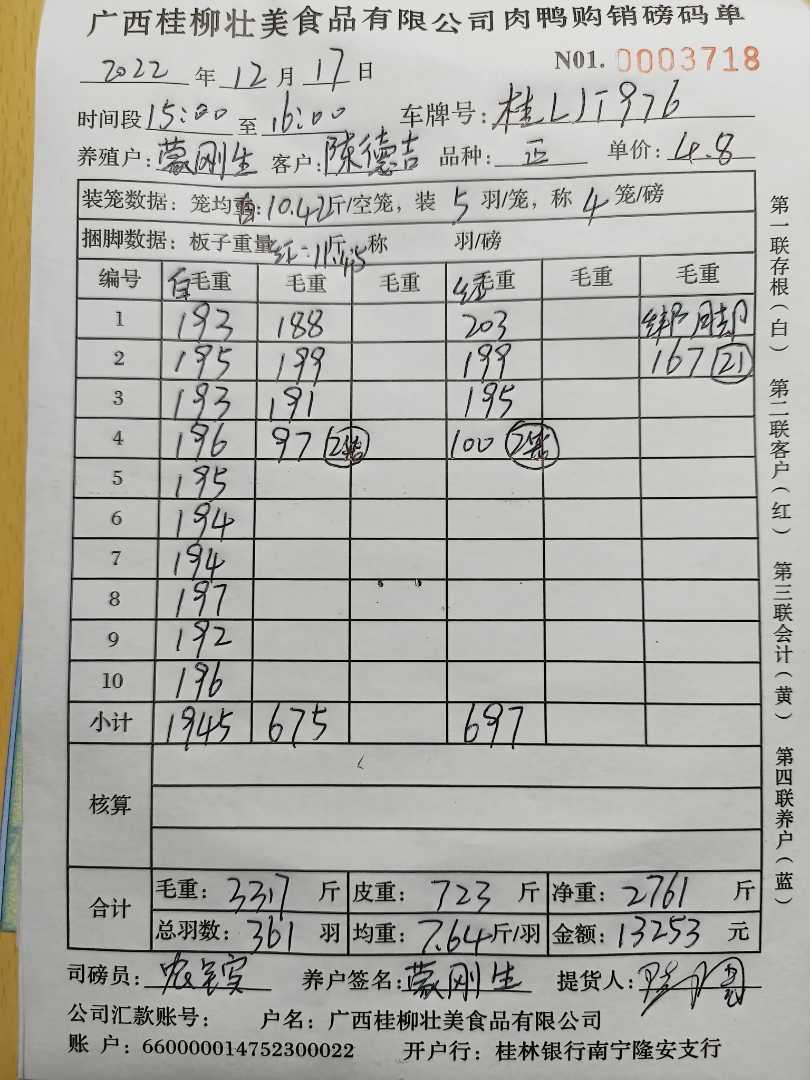 广西桂柳壮美食品有限公司肉鸭购销磅码单
N01. 0003718
2022 年 12 月 17 日
时间段 15:00 至 16:00 车牌号: 桂LJT976
养殖户: 蒙刚生 客户: 陈德吉 品种: 正 单价: 4.8
装笼数据: 笼均重: 10.42斤/空笼, 装 5 羽/笼, 称 4 笼/磅
捆脚数据: 板子重量 红:11.45斤 称 羽/磅
编号 白毛重 毛重 毛重 红毛重 毛重 毛重
1 193 188 203 绑脚
2 195 199 199 167 21
3 193 191 195
4 196 97 2笼 100 2笼
5 195
6 194
7 194
8 197
9 192
10 196
小计 1945 675 697
核算
合计 毛重: 3317 斤 皮重: 723 斤 净重: 2761 斤
总羽数: 361 羽 均重: 7.64斤/羽 金额: 13253 元
司磅员: 养户签名: 蒙刚生 提货人:
公司汇款账号: 户名: 广西桂柳壮美食品有限公司
账 户: 660000014752300022 开户行: 桂林银行南宁隆安支行
第一联存根(白) 第二联客户(红) 第三联会计(黄) 第四联养户(蓝)